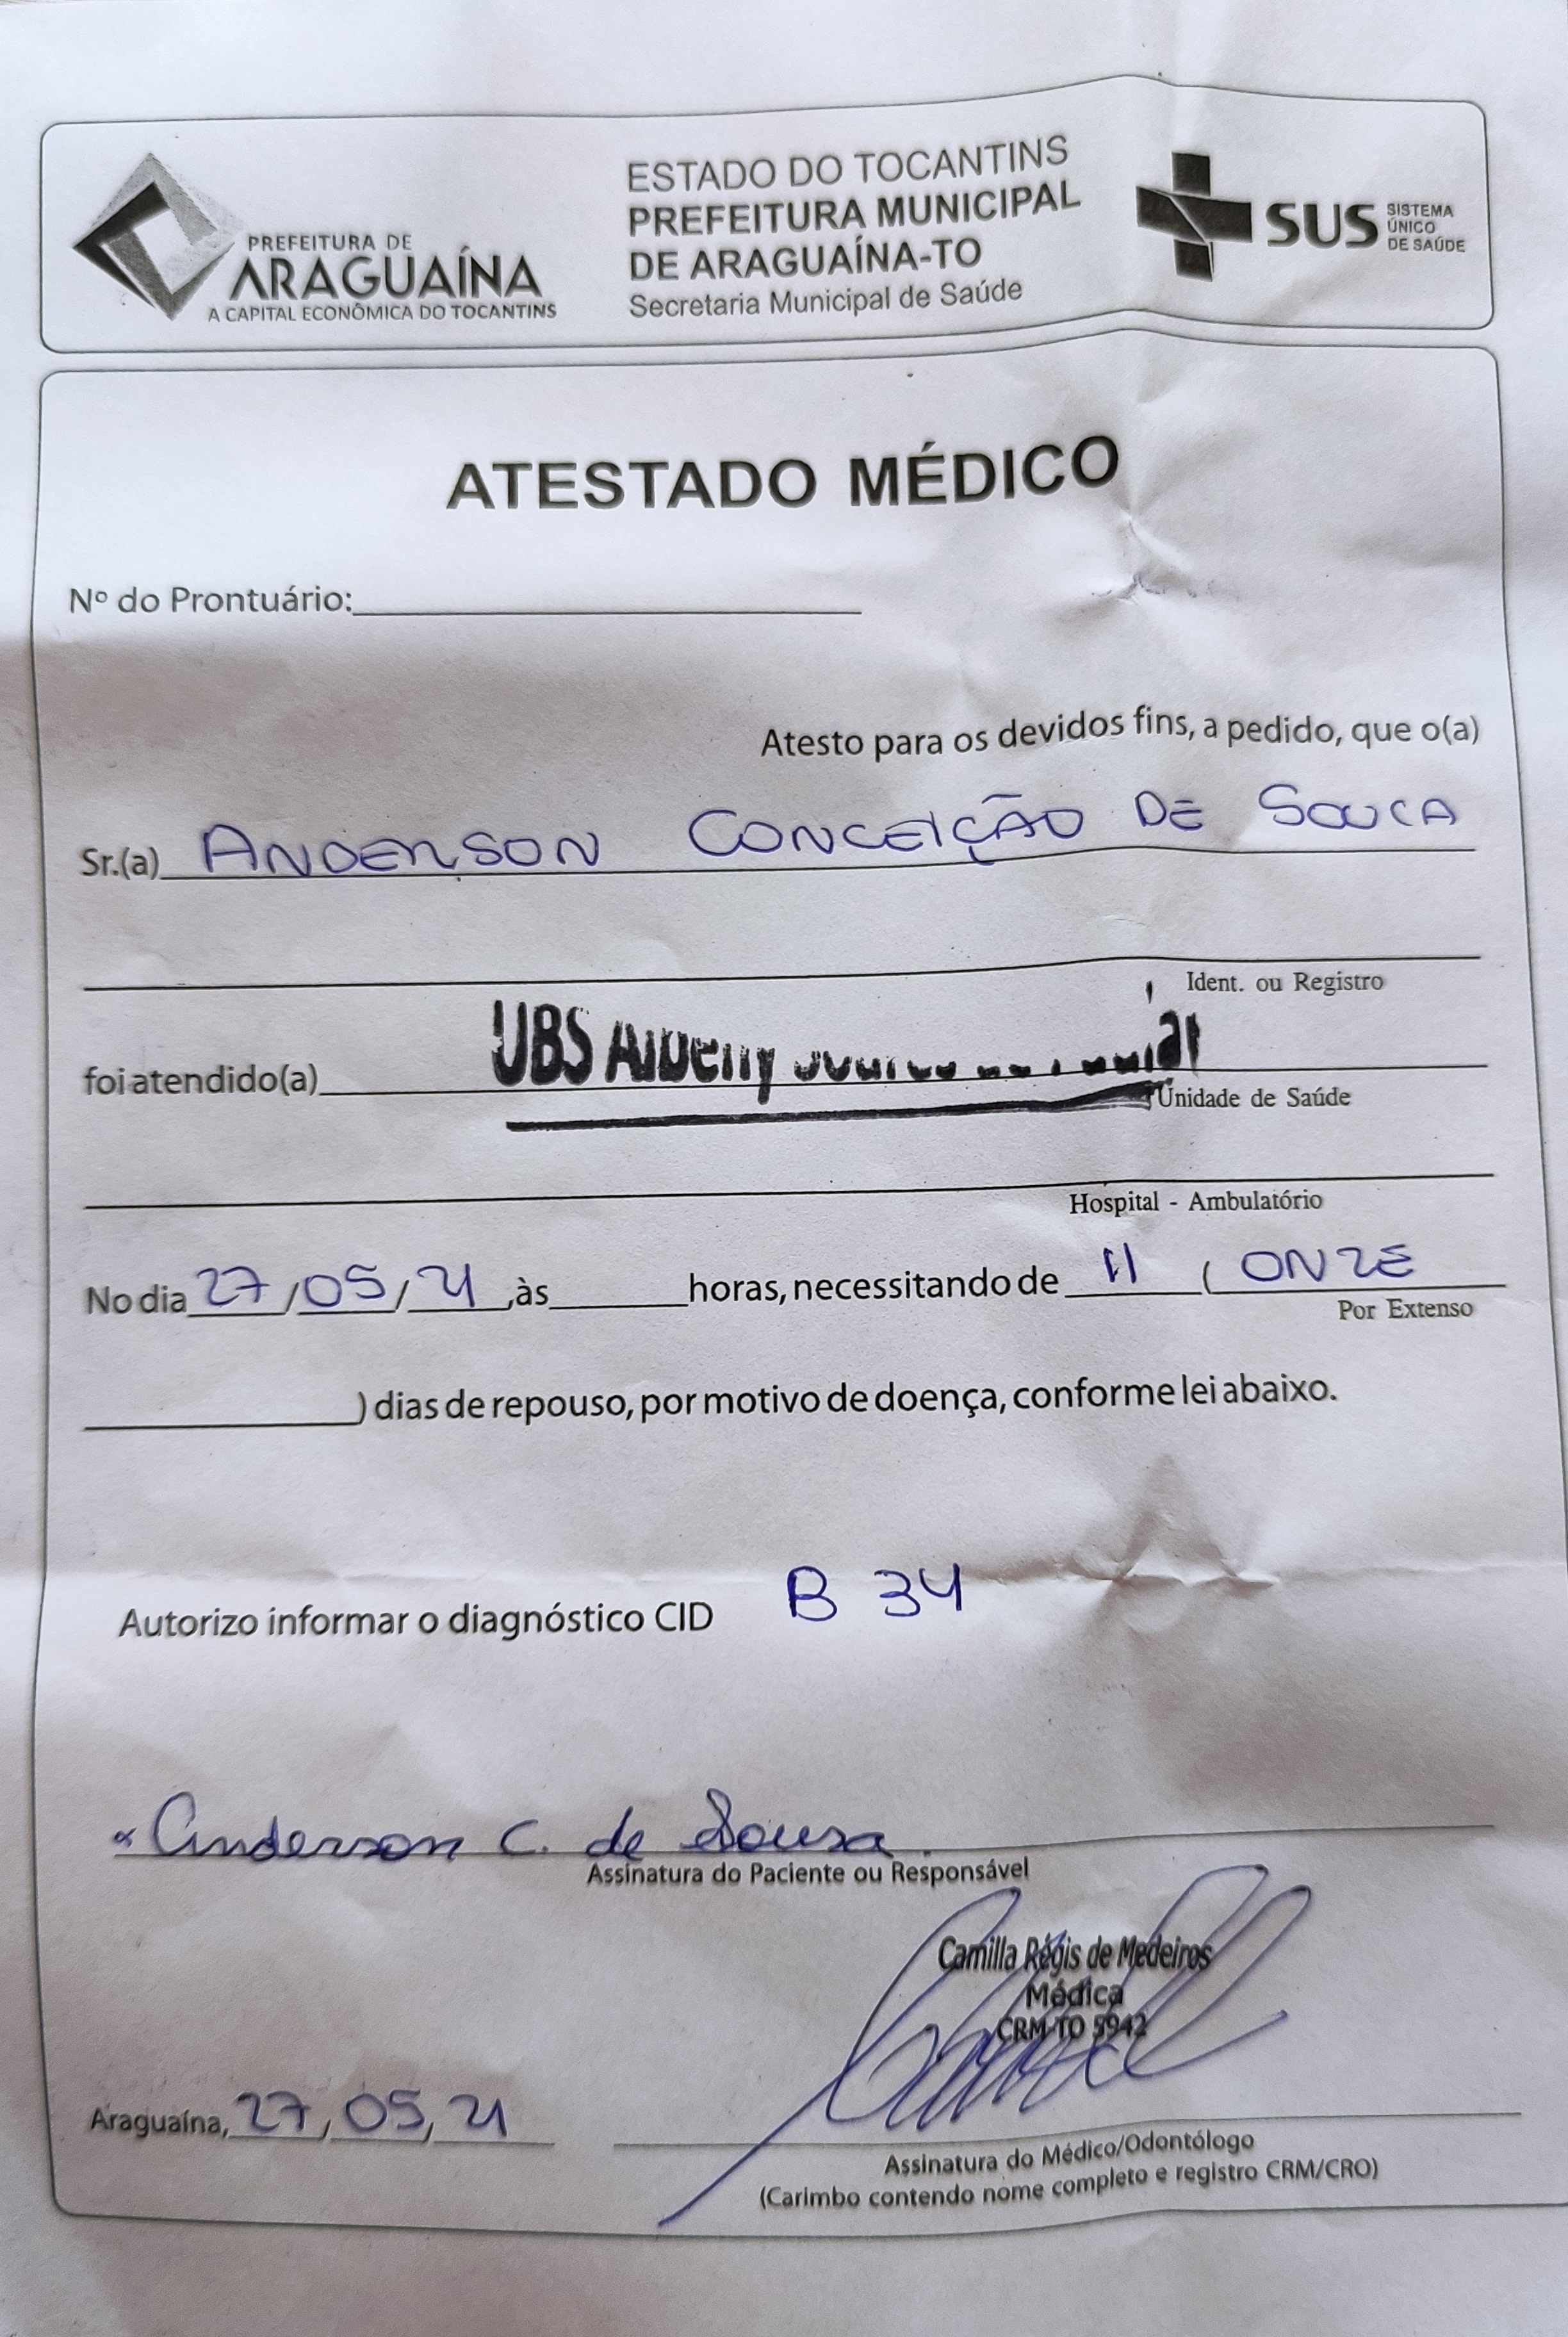 PREFEITURA DE
ARAGUAÍNA
A CAPITAL ECONÔMICA DO TOCANTINS
ESTADO DO TOCANTINS
PREFEITURA MUNICIPAL
DE ARAGUAÍNA-TO
Secretaria Municipal de Saúde
SUS SISTEMA
ÚNICO
DE SAÚDE
ATESTADO MÉDICO
Nº do Prontuário:
Atesto para os devidos fins, a pedido, que o(a)
Sr.(a) ANDERSON CONCEIÇÃO DE SOUCA
Ident. ou Registro
foi atendido(a) UBS Albeny
Unidade de Saúde
Hospital - Ambulatório
No dia 27/05/21, às horas, necessitando de 11 ( ONZE
Por Extenso
) dias de repouso, por motivo de doença, conforme lei abaixo.
Autorizo informar o diagnóstico CID B 34
Anderson C. de Sousa
Assinatura do Paciente ou Responsável
Camilla Régis de Medeiros
Médica
CRM-TO 5942
Araguaína, 27, 05, 21
Assinatura do Médico/Odontólogo
(Carimbo contendo nome completo e registro CRM/CRO)